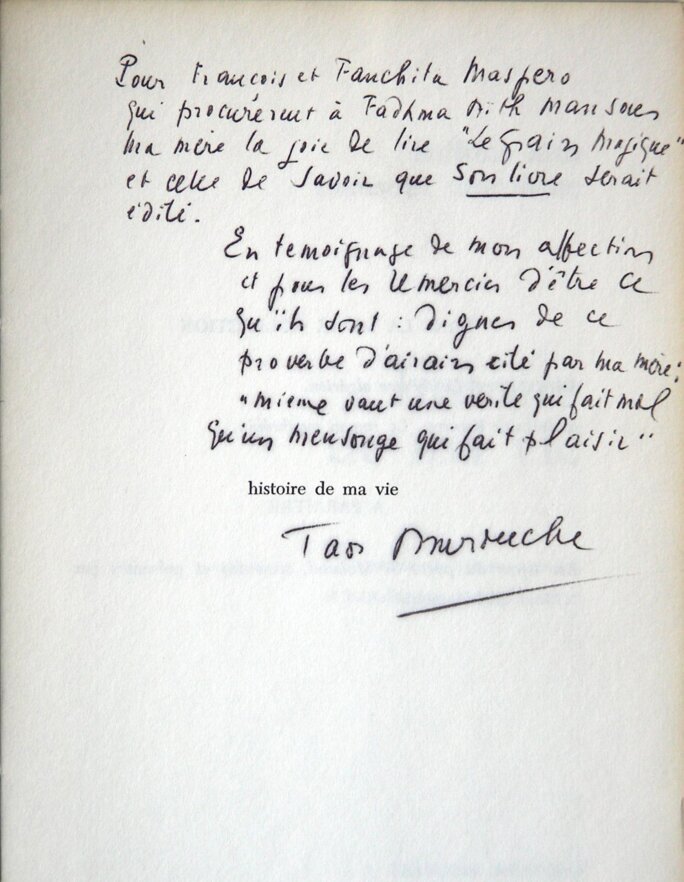 Pour François et Fanchita Maspero
qui procurèrent à Fadhma Aïth Mansour
ma mère la joie de lire "Le grain Magique"
et celle de savoir que son livre serait
édité.
En temoignage de mon affection
et pour les remercier d'être ce
qu'ils sont : dignes de ce
proverbe d'airain cité par ma mère :
"mieux vaut une verité qui fait mal
qu'un mensonge qui fait plaisir"
histoire de ma vie
Taos Amrouche